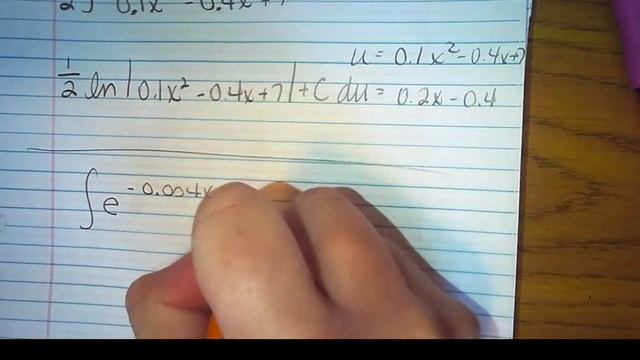 2∫ 0.1x² - 0.4x + 7
u = 0.1x² - 0.4x + 7
½ ln|0.1x² - 0.4x + 7| + C du = 0.2x - 0.4
∫ e^-0.004x